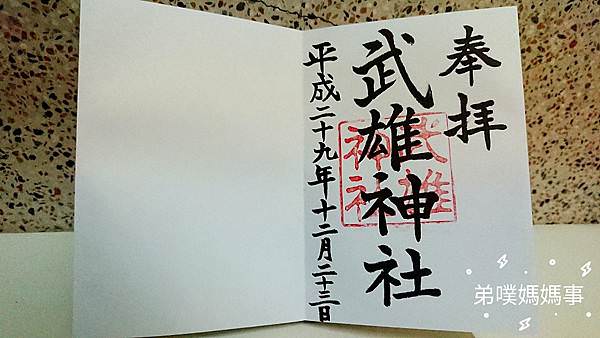 奉拝
武雄神社
武雄
神社
平成二十九年十二月二十三日
弟噗媽媽事